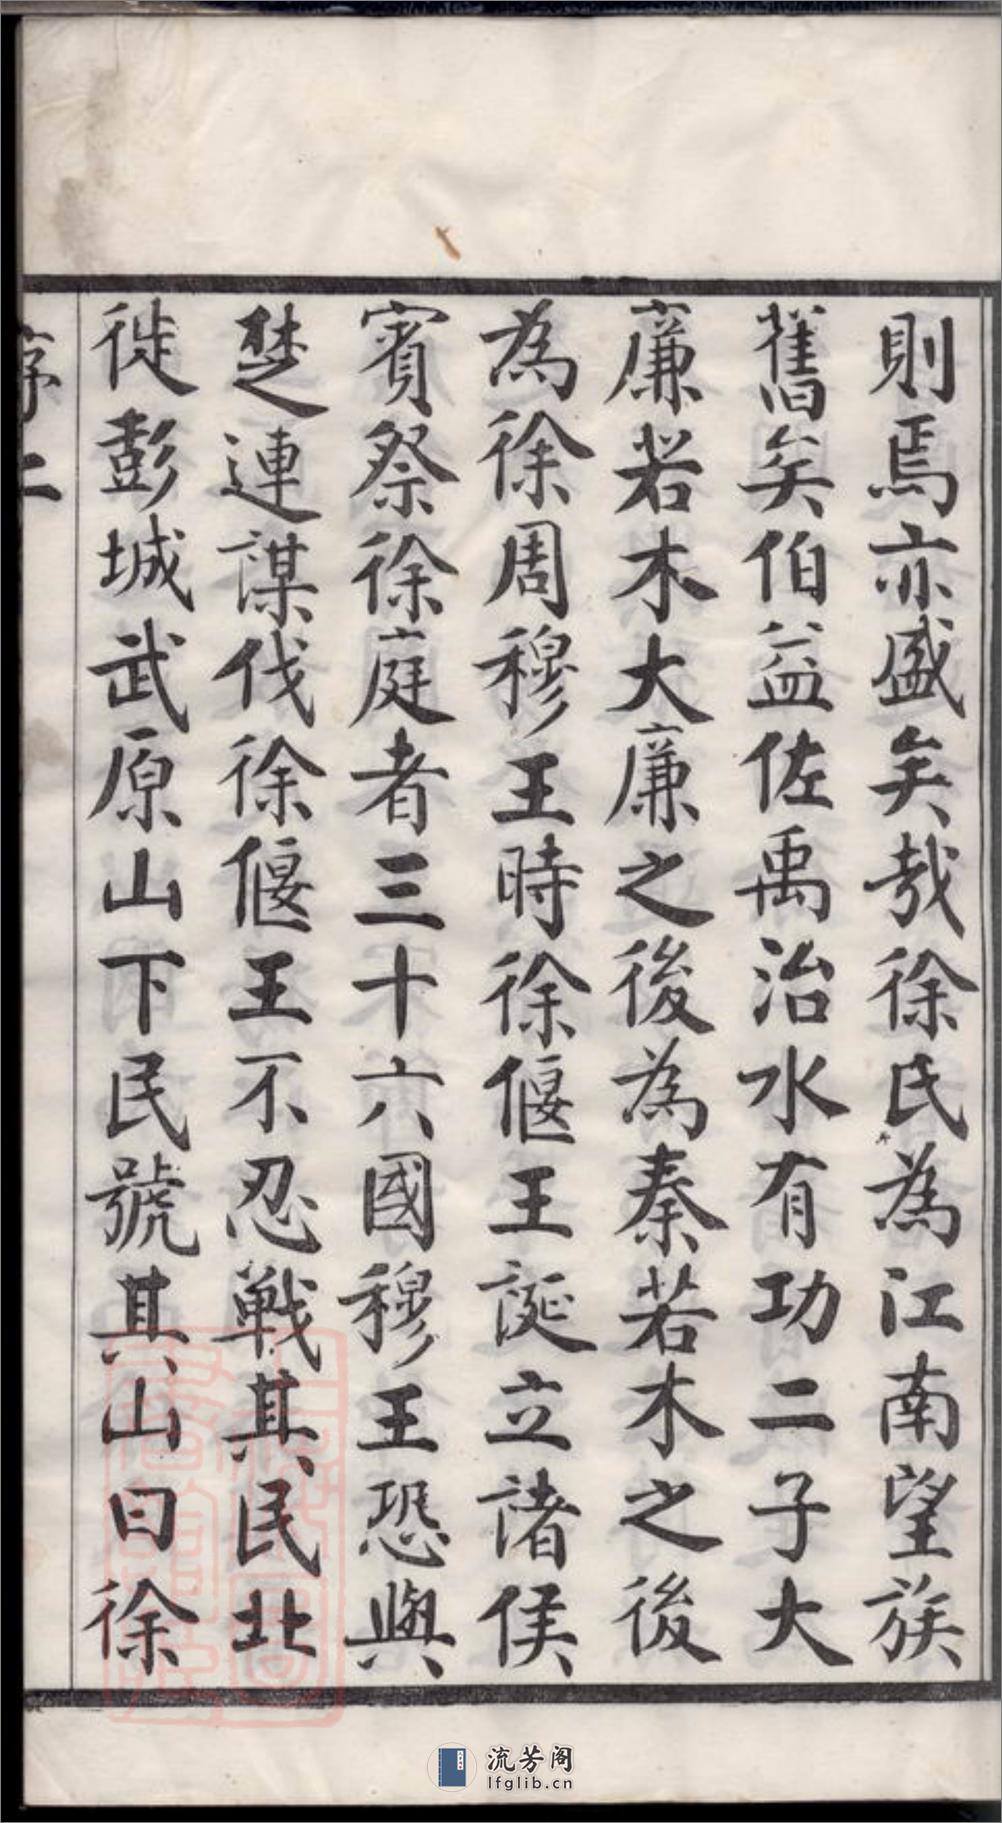 則焉亦盛矣哉徐氏為江南望族
舊矣伯益佐禹治水有功二子大
廉若木大廉之後為秦若木之後
為徐周穆王時徐偃王誕立諸侯
賓祭徐庭者三十六國穆王恐與
楚連謀伐徐偃王不忍戰其民北
徙彭城武原山下民號其山曰徐
序二
流芳阁
lfglib.cn